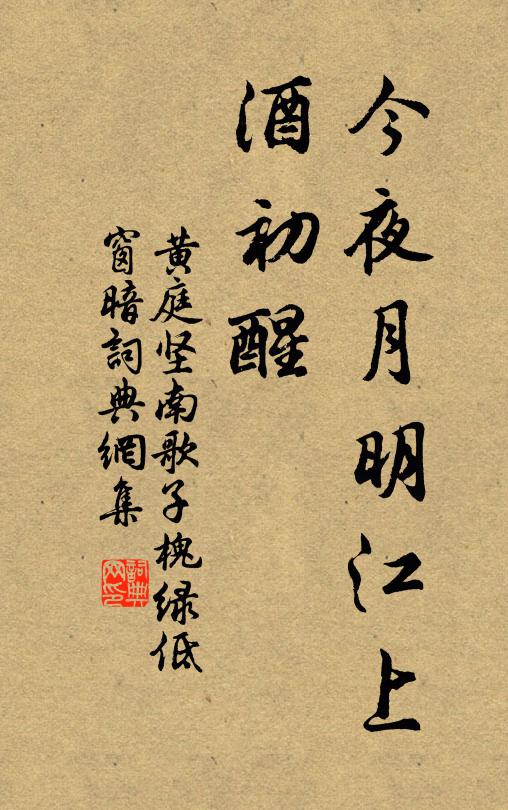 今夜月明江上
酒初醒
黄庭坚南歌子槐绿低
窗暗詞典網集
詞典网印